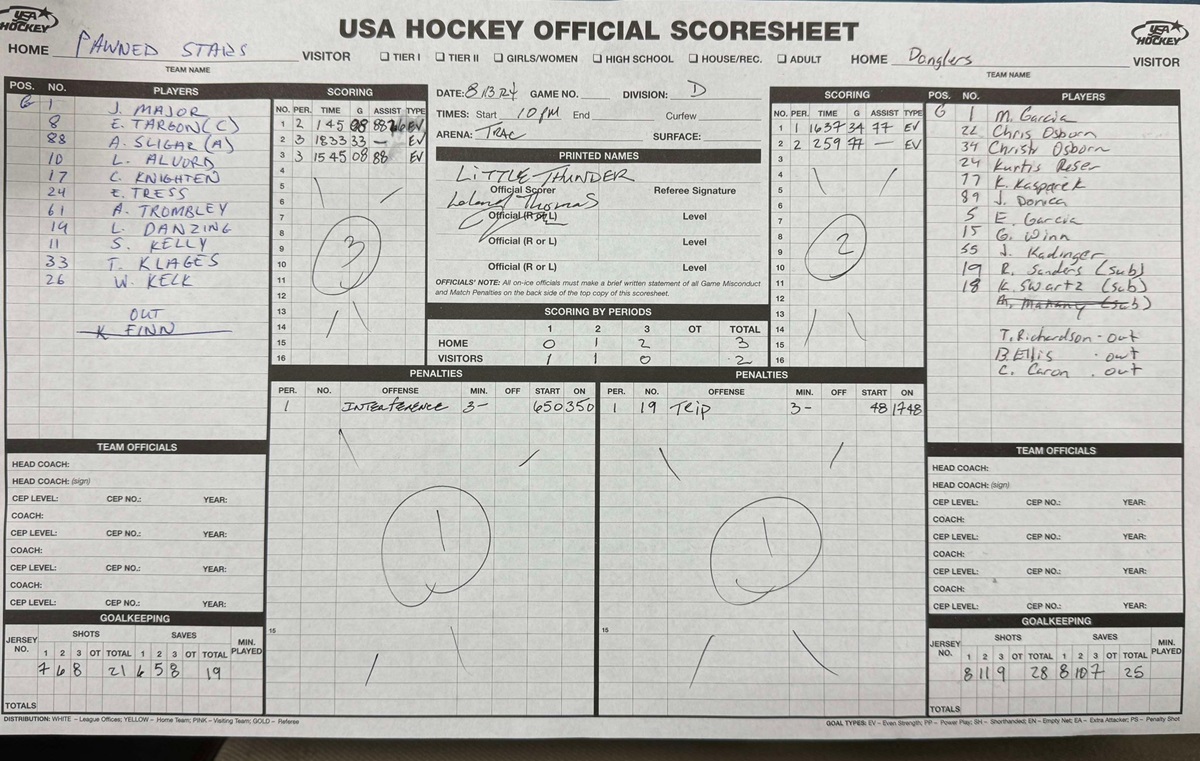 USA HOCKEY
USA HOCKEY OFFICIAL SCORESHEET
USA HOCKEY
HOME PAWNED STARS VISITOR
TEAM NAME
☐ TIER I ☐ TIER II ☐ GIRLS/WOMEN ☐ HIGH SCHOOL ☐ HOUSE/REC. ☐ ADULT
HOME Danglers VISITOR
TEAM NAME
POS. NO. PLAYERS
G 1 J. MAJOR
8 E. TARGON (C)
88 A. SLIGAR (A)
10 L. ALVORD
17 C. KNIGHTEN
24 E. TRESS
61 A. TROMBLEY
19 L. DANZING
11 S. KELLY
33 T. KLAGES
26 W. KELK
OUT
K FINN
SCORING
NO. PER. TIME G ASSIST TYPE
1 2 145 08 88 EV
2 3 1833 33 — EV
3 3 1545 08 88 EV
4
5
6
7
8
9
10
11
12
13
14
15
16
3
DATE: 8/13.24 GAME NO. DIVISION: D
TIMES: Start 10pm End Curfew
ARENA: TRAC SURFACE:
PRINTED NAMES
LITTLE THUNDER
Official Scorer Referee Signature
Leland Thomas
Official (R or L) Level
Official (R or L) Level
Official (R or L) Level
OFFICIALS' NOTE: All on-ice officials must make a brief written statement of all Game Misconduct
and Match Penalties on the back side of the top copy of this scoresheet.
SCORING BY PERIODS
1 2 3 OT TOTAL
HOME 0 1 2 3
VISITORS 1 1 0 2
SCORING
NO. PER. TIME G ASSIST TYPE
1 1 1637 34 77 EV
2 2 259 77 — EV
3
4
5
6
7
8
9
10
11
12
13
14
15
16
2
POS. NO. PLAYERS
G 1 M. Garcia
22 Chris Osborn
34 Christy Osborn
24 Kurtis Reser
77 K. Kasparek
89 J. Donica
5 E. Garcia
15 G. Winn
55 J. Kadinger
19 R. Sanders (sub)
18 K. Swartz (sub)
A. Mahany (sub)
T. Richardson - out
B. Ellis . out
C. Caron . out
PENALTIES
PER. NO. OFFENSE MIN. OFF START ON
1 INTERFERENCE 3- 650 350
15
1
PENALTIES
PER. NO. OFFENSE MIN. OFF START ON
1 19 TRIP 3- 48 1748
15
1
TEAM OFFICIALS
HEAD COACH:
HEAD COACH: (sign)
CEP LEVEL: CEP NO.: YEAR:
COACH:
CEP LEVEL: CEP NO.: YEAR:
COACH:
CEP LEVEL: CEP NO.: YEAR:
COACH:
CEP LEVEL: CEP NO.: YEAR:
GOALKEEPING
JERSEY NO. SHOTS SAVES MIN. PLAYED
1 2 3 OT TOTAL 1 2 3 OT TOTAL
7 6 8 21 6 5 8 19
TOTALS
TEAM OFFICIALS
HEAD COACH:
HEAD COACH: (sign)
CEP LEVEL: CEP NO.: YEAR:
COACH:
CEP LEVEL: CEP NO.: YEAR:
COACH:
CEP LEVEL: CEP NO.: YEAR:
COACH:
CEP LEVEL: CEP NO.: YEAR:
GOALKEEPING
JERSEY NO. SHOTS SAVES MIN. PLAYED
1 2 3 OT TOTAL 1 2 3 OT TOTAL
8 11 9 28 8 10 7 25
TOTALS
DISTRIBUTION: WHITE – League Offices; YELLOW – Home Team; PINK – Visiting Team; GOLD – Referee
GOAL TYPES: EV – Even Strength; PP – Power Play; SH – Shorthanded; EN – Empty Net; EA – Extra Attacker; PS – Penalty Shot